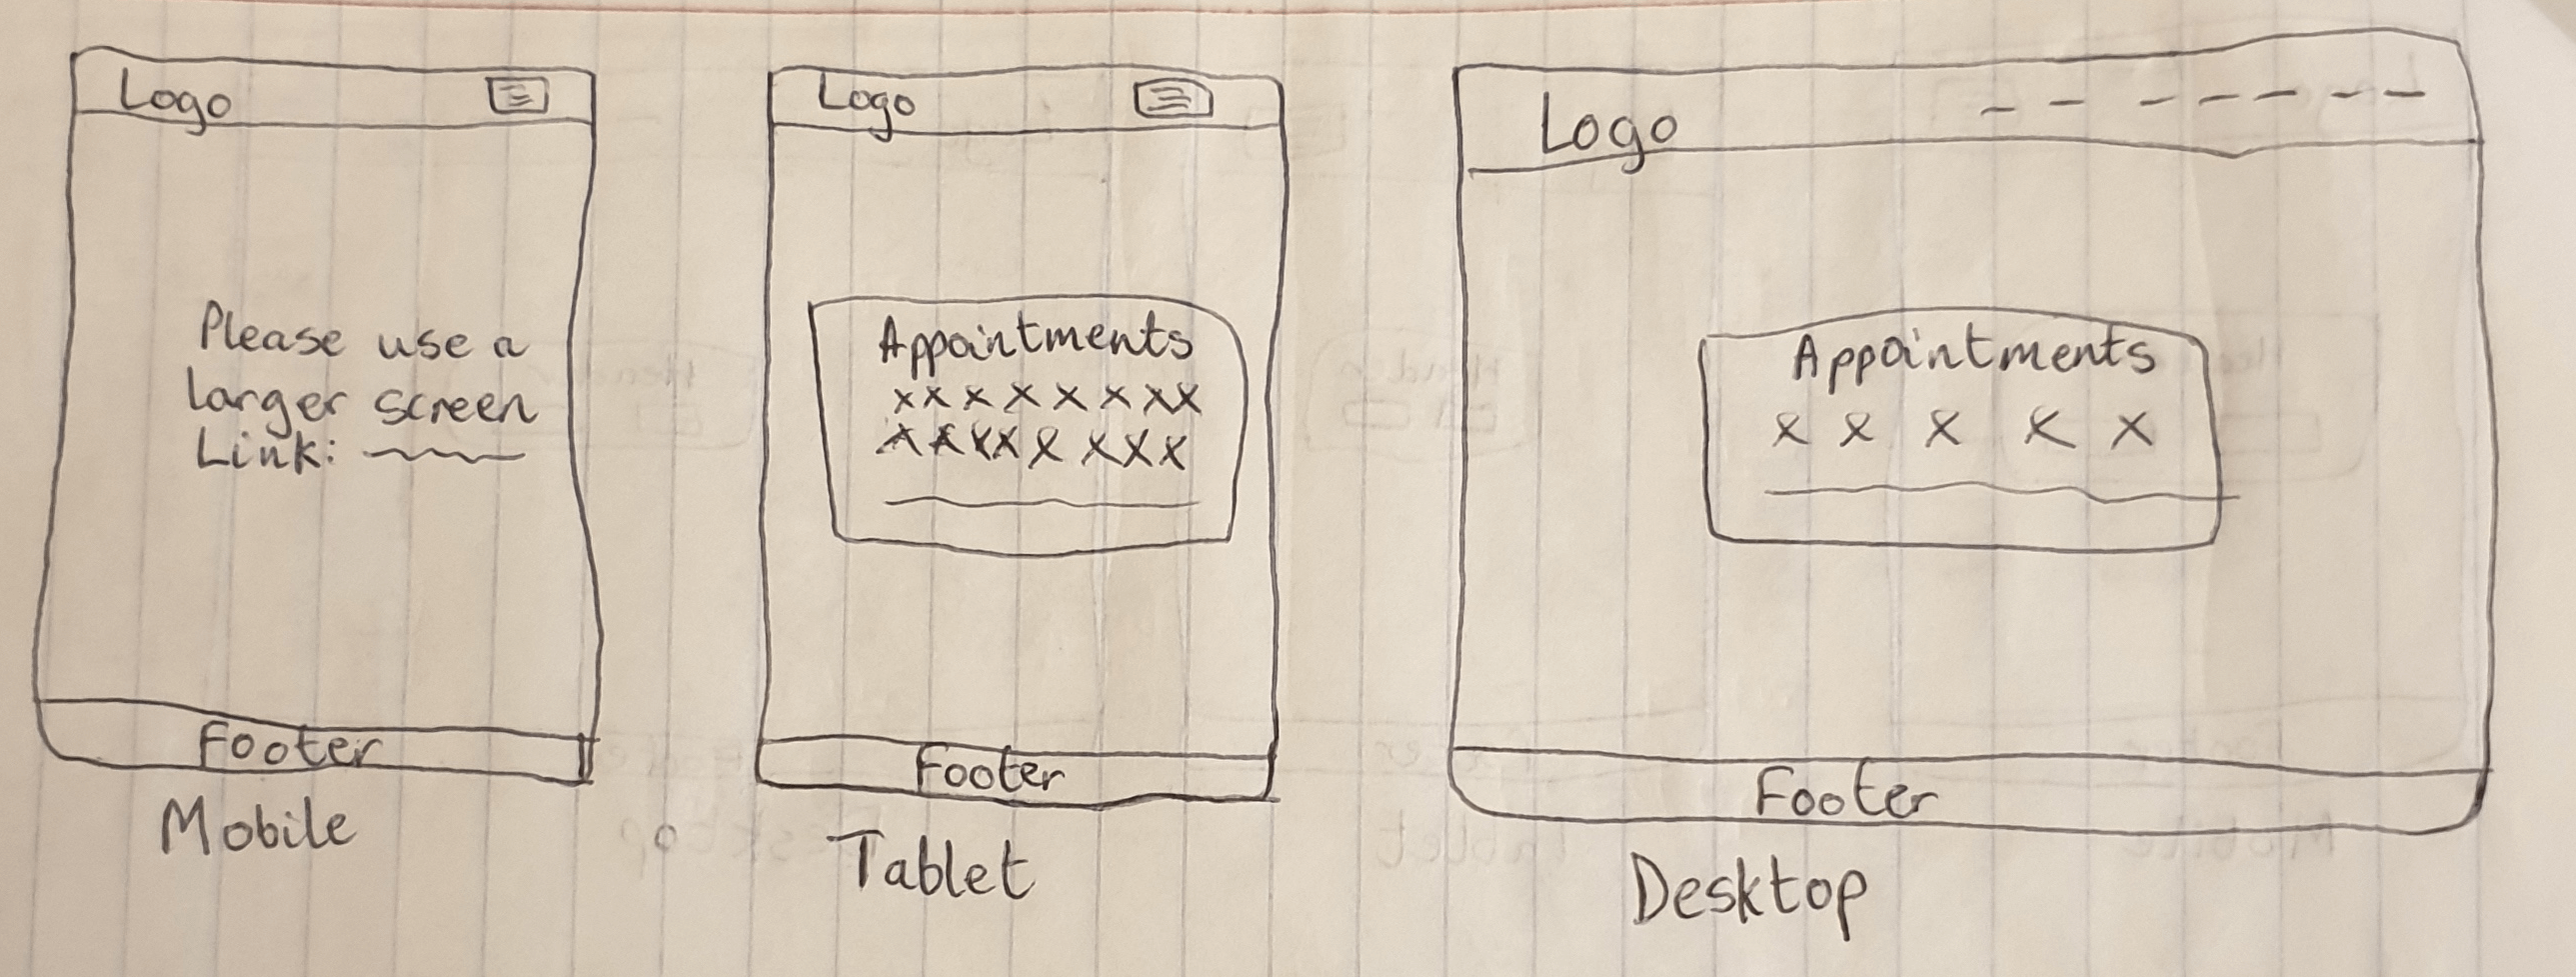 Logo
Please use a
larger screen
Link:
Footer
Mobile
Logo
Appointments
xxxxxxxx
xxxxxxxx
Footer
Tablet
Logo
Appointments
x x x x x
Footer
Desktop